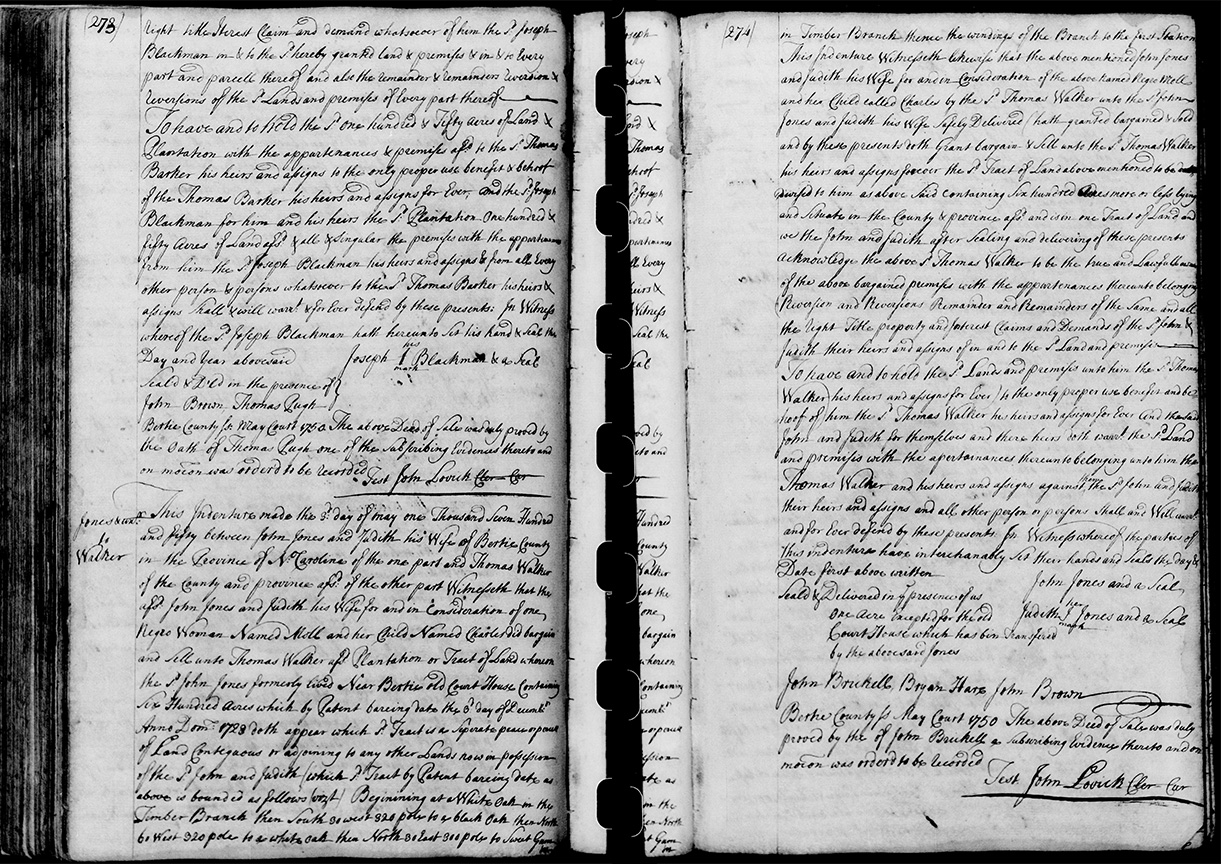 (273)
right title Iterest Claim and demand whatsoever of him the Sd. Joseph
Blackman in & to the Sd. hereby granted land & premises & in & to Every
part and parcell thereof and also the remainder & remainders reversion &
reversions of the Sd. Lands and premises of Every part thereof
To have and to Hold the Sd. one hundred & fifty Acres of Land &
Plantation with the appartenances & premises afsd. to the Sd. Thomas
Barker his heirs and assigns to the only proper use benefit & behoof
of the Thomas Barker his heirs and assigns for Ever, and the Sd. Joseph
Blackman for him and his heirs the Sd. Plantation One hundred &
fifty Acres of Land afsd. & all & Singular the premises with the appartenances
from him the Sd. Joseph Blackman his heirs and assigns & from all Every
other person & persons whatsoever to the Sd. Thomas Barker his heirs &
assigns Shall & will warrt. & for Ever defend by these presents: In Witness
whereof the Sd. Joseph Blackman hath hereunto Set his hand & Seal the
Day and Year abovesaid Joseph his mark Blackman & a Seal
Seald & Deld in the presence of
John Brown Thomas Pugh
Bertie County ss. May Court 1750 The above Deed of Sale was duly proved by
the Oath of Thomas Pugh one of the Subscribing Evidences thereto and
on motion was orderd to be recorded
Test John Lovick Cler Cur
Jones & uxr.
to
Walker
This Indenture made the 3d. day of may one Thousand Seven Hundred
and fifty between John Jones and Judith his Wife of Bertie County
in the Province of No. Carolina of the one part and Thomas Walker
of the County and province afsd. of the other part Witnesseth that the
afsd. John Jones and Judith his Wife for and in Consideration of one
Negro Woman Named Moll and her Child Named Charles did bargain
and Sell unto Thomas Walker afsd. Plantation or Tract of Land whereon
the Sd. John Jones formerly lived Near Bertie old Court House Containing
Six Hundred Acres which by Patent bareing date the day of
Anno Dom. 1728 doth appear which Sd. Tract is a Seperate peace or parcel
of Land Conteguous or adjoining to any other Lands now in possession
of the Sd. John and Judith (which Sd. Tract by Patent bareing date as
above is bounded as follows (vizt) Begininning at a White Oak in the
Timber Branch then South 30 west 320 pole to a black Oak then North
60 West 320 pole to a white oak then North 30 East 300 pole to Sweet Gum
(274)
in Timber Branch thence the windings of the Branch to the first Station
This Indenture Witnesseth likewise that the above mentioned John Jones
and Judith his Wife for and in Consideration of the above named Negro Moll
and her Child called Charles by the Sd. Thomas Walker unto the Sd. John
Jones and Judith his Wife Safely Delivered (hath granted bargained & Sold
and by these presents doth Grant bargain & Sell unto the Sd. Thomas Walker
his heirs and assigns forever the Sd. Tract of Land above mentioned to be
devised to him as above Said Containing Six hundred Acres more or less lying
and Situate in the County & province afsd. and is in one Tract of Land and
we the John and Judith after Sealing and delivering of these presents
acknowledge the above Sd. Thomas Walker to be the true and Lawfull owner
of the above bargained premises with the appartenances thereunto belonging
Reversion and Reversions Remainder and Remainders of the Same and all
the right Title property and Interest Claims and Demands of the Sd. John &
Judith their heirs and assigns of in and to the Sd. Land and premises
To have and to hold the Sd. Lands and premises unto him the Sd. Thomas
Walker his heirs and assigns for Ever) to the only proper use benefit and be
hoof of him the Sd. Thomas Walker he heirs and assigns for Ever and the said
John and Judith for themselves and there heirs doth warrt. the Sd. Land
and premises with the apertainances thereunto belonging unto him the
Thomas Walker and his heirs and assigns against the Sd. John and Judith
their heirs and assigns and all other person or persons Shall and Will warrt.
and for Ever defend by these presents In Witness whereof the parties of
this indenture have interchanably Set their hands and Seals the day &
Date first above written
John Jones and a Seal
Seald & Delivered in presence of us
Judith her mark Jones and a Seal
One Acre Excepted for the old
Court House which has bin Transfered
by the abovesaid Jones
John Brickell, Bryan Hare John Brown
Bertie County ss May Court 1750 The above Deed of Sale was duly
proved by the of John Brickell a Subscribing Evidence thereto and on
motion was orderd to be recorded
Test John Lovick Cler Cur